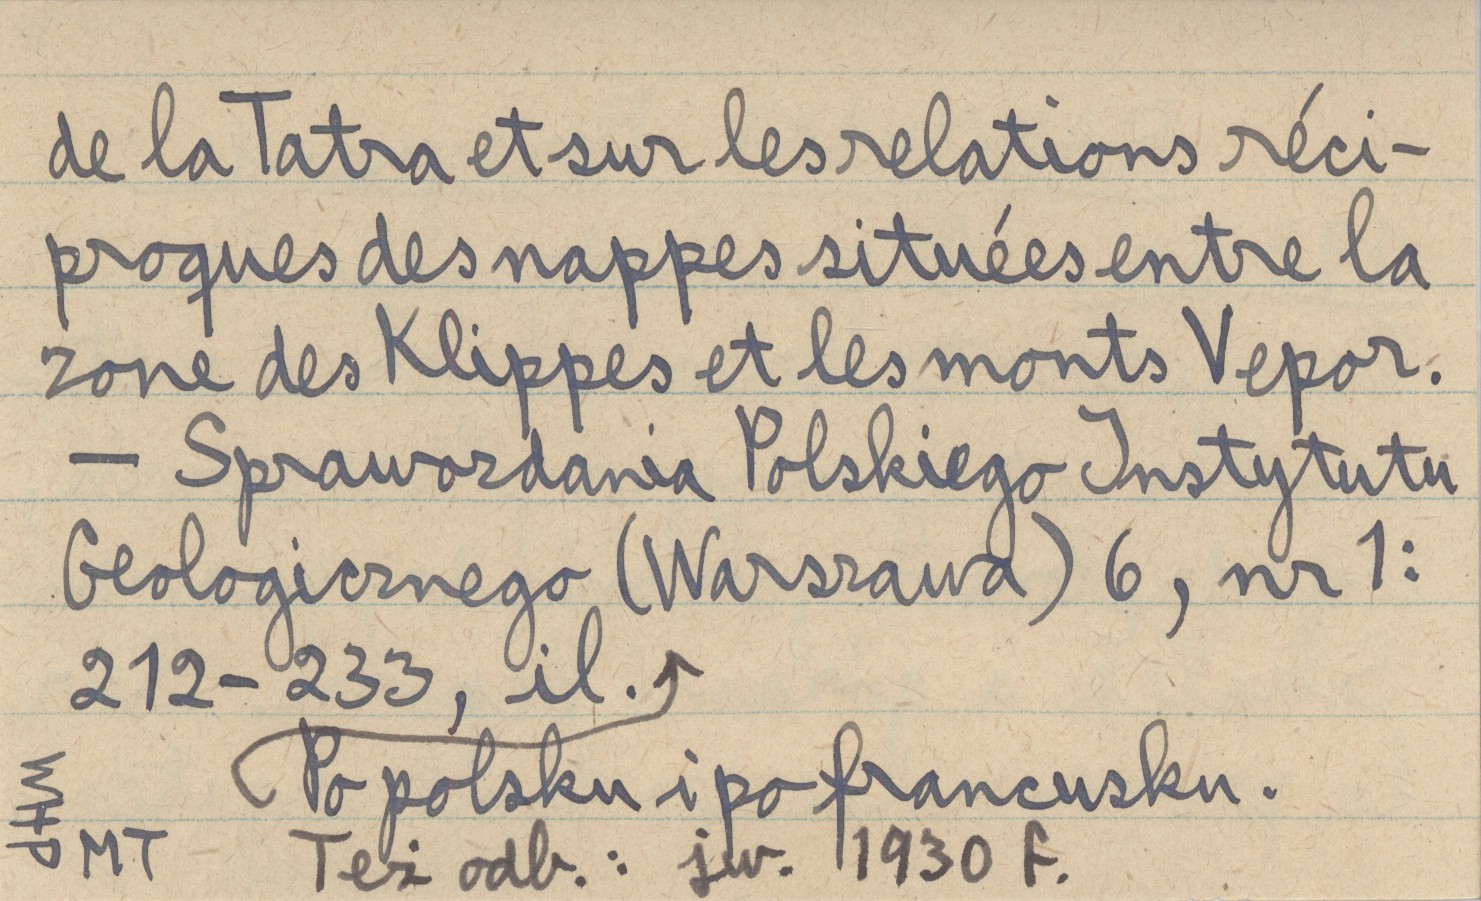 de la Tatra et sur les relations réci-
proques des nappes situées entre la
zone des Klippes et les monts Vepor.
— Sprawozdania Polskiego Instytutu
Geologicznego (Warszawa) 6, nr 1:
212-233, il.
Po polsku i po francusku.
MT
Też odb.: jw. 1930 F.